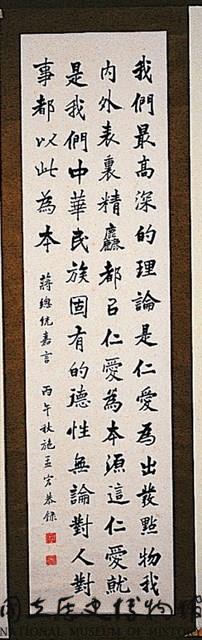 我們最高深的理論是仁愛為出發點物我
內外表裏精麤都以仁愛為本源這仁愛就
是我們中華民族固有的德性無論對人對
事都以此為本
蔣總統嘉言 丙午秋施孟宏恭錄
國立歷史博物館
NATIONAL MUSEUM OF HISTORY